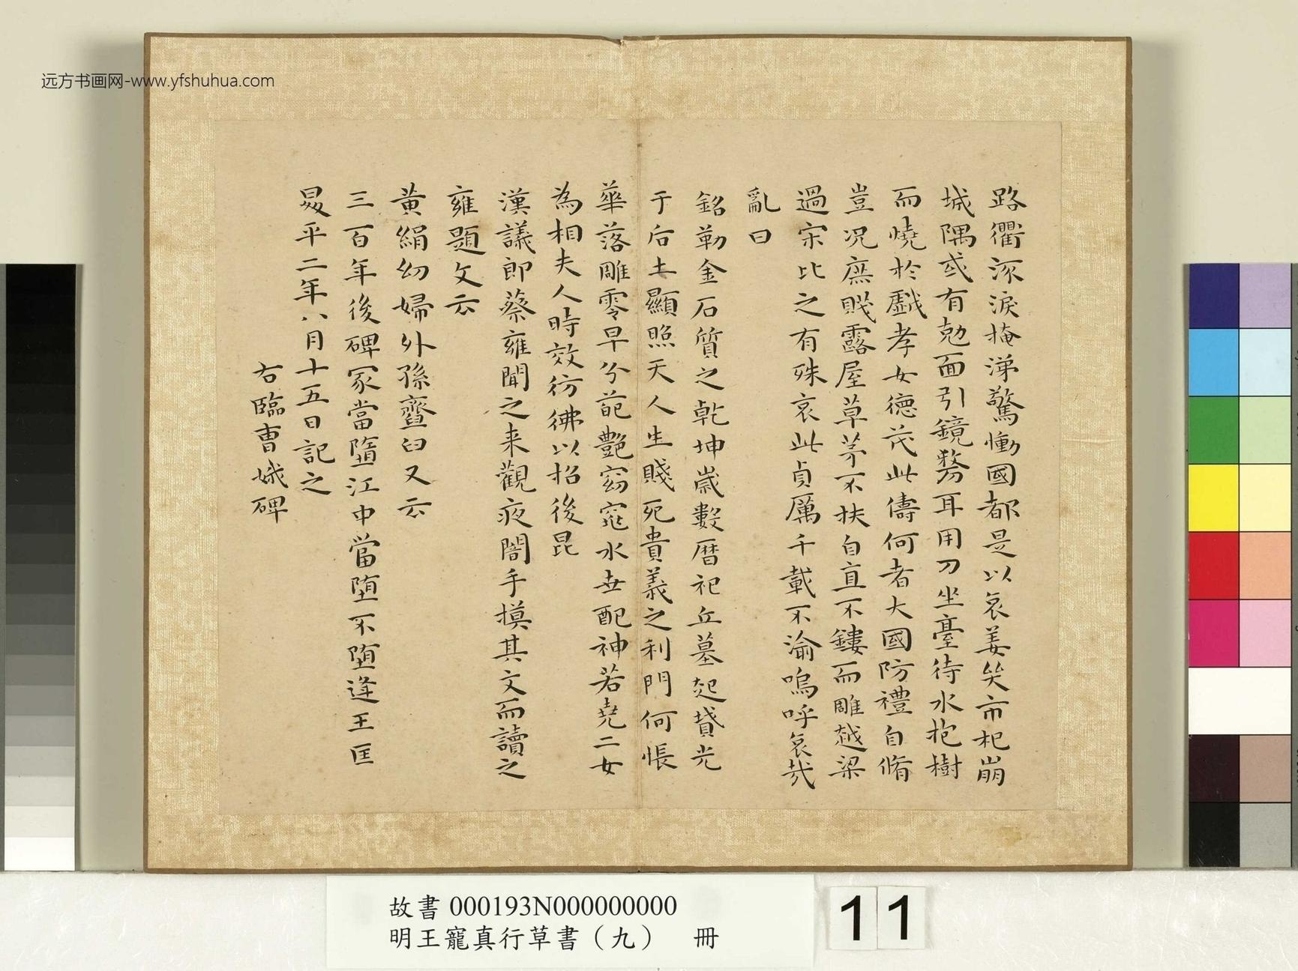 远方书画网-www.yfshuhua.com
路衢流淚掩涕驚慟國都是以哀姜哭市杞崩
城隅或有勊面引鏡剺耳用刀坐臺待水抱樹
而燒於戲孝女德茂此儔何者大國防禮自脩
豈况庶賤露屋草茅不扶自直不鏤而雕越梁
過宋比之有殊哀此貞厲千載不渝嗚呼哀哉
亂曰
銘勒金石質之乾坤歲數曆祀丘墓起墳光
于后土顯照天人生賤死貴義之利門何悵
華落雕零早分葩艷窈窕永世配神若堯二女
為相夫人時效彷彿以招後昆
漢議郎蔡雍聞之来觀夜闇手摸其文而讀之
雍題文云
黃絹幼婦外孫齏臼又云
三百年後碑冢當墮江中當墮不墮逢王匡
昇平二年八月十五日記之
右臨曹娥碑
故書000193N000000000
明王寵真行草書（九） 冊
11